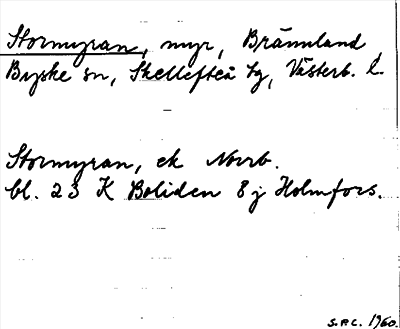 Stormyran, myr, Brännland,
Byske sn, Skellefteå tg, Västerb. l.
Stormyran, ek Norrb.
bl. 23 K Boliden 8j Holmfors.
S.P.C. 1960.